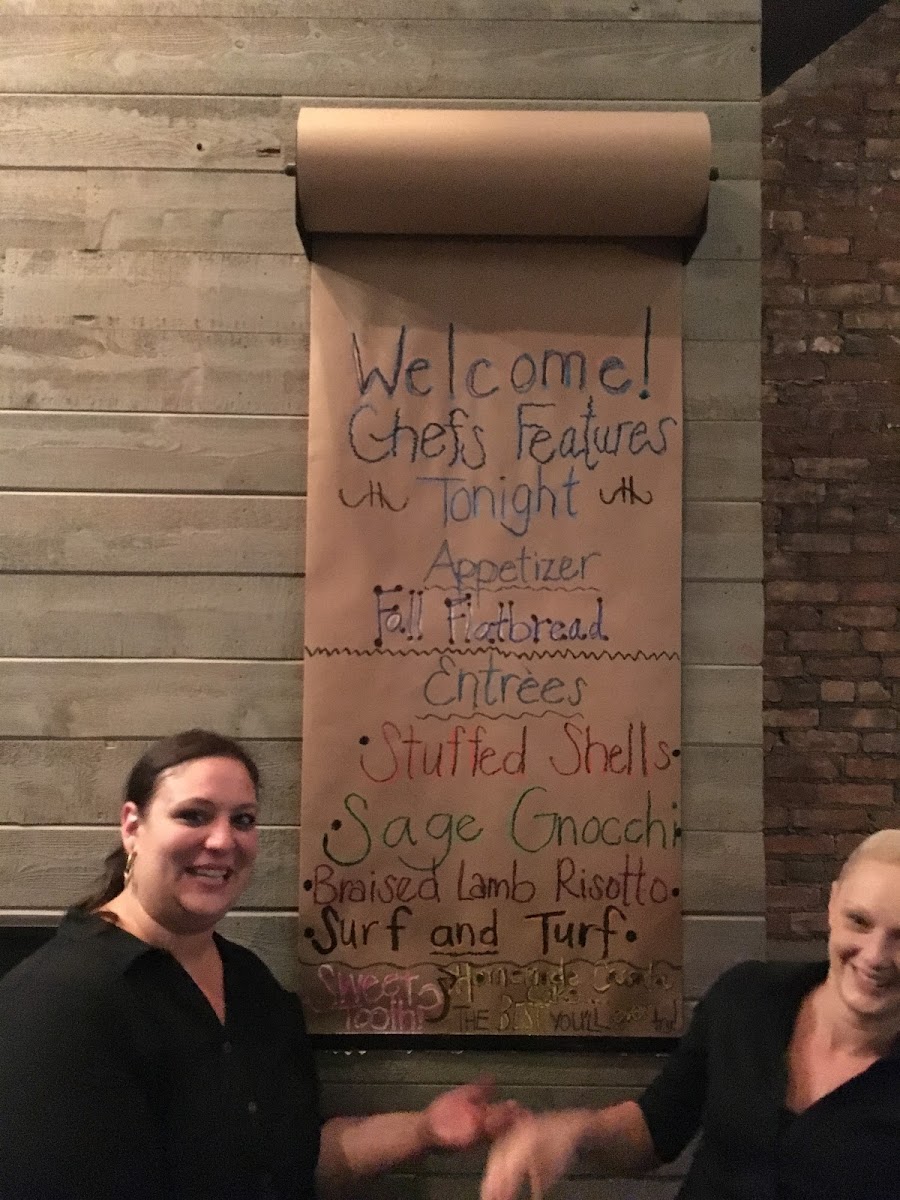 Welcome!
Chefs Features
Tonight
Appetizer
Fall Flatbread
Entrèes
•Stuffed Shells•
•Sage Gnocchi•
•Braised Lamb Risotto•
•Surf and Turf•
Sweet Tooth?
Homemade
THE BEST YOU'LL ever try!